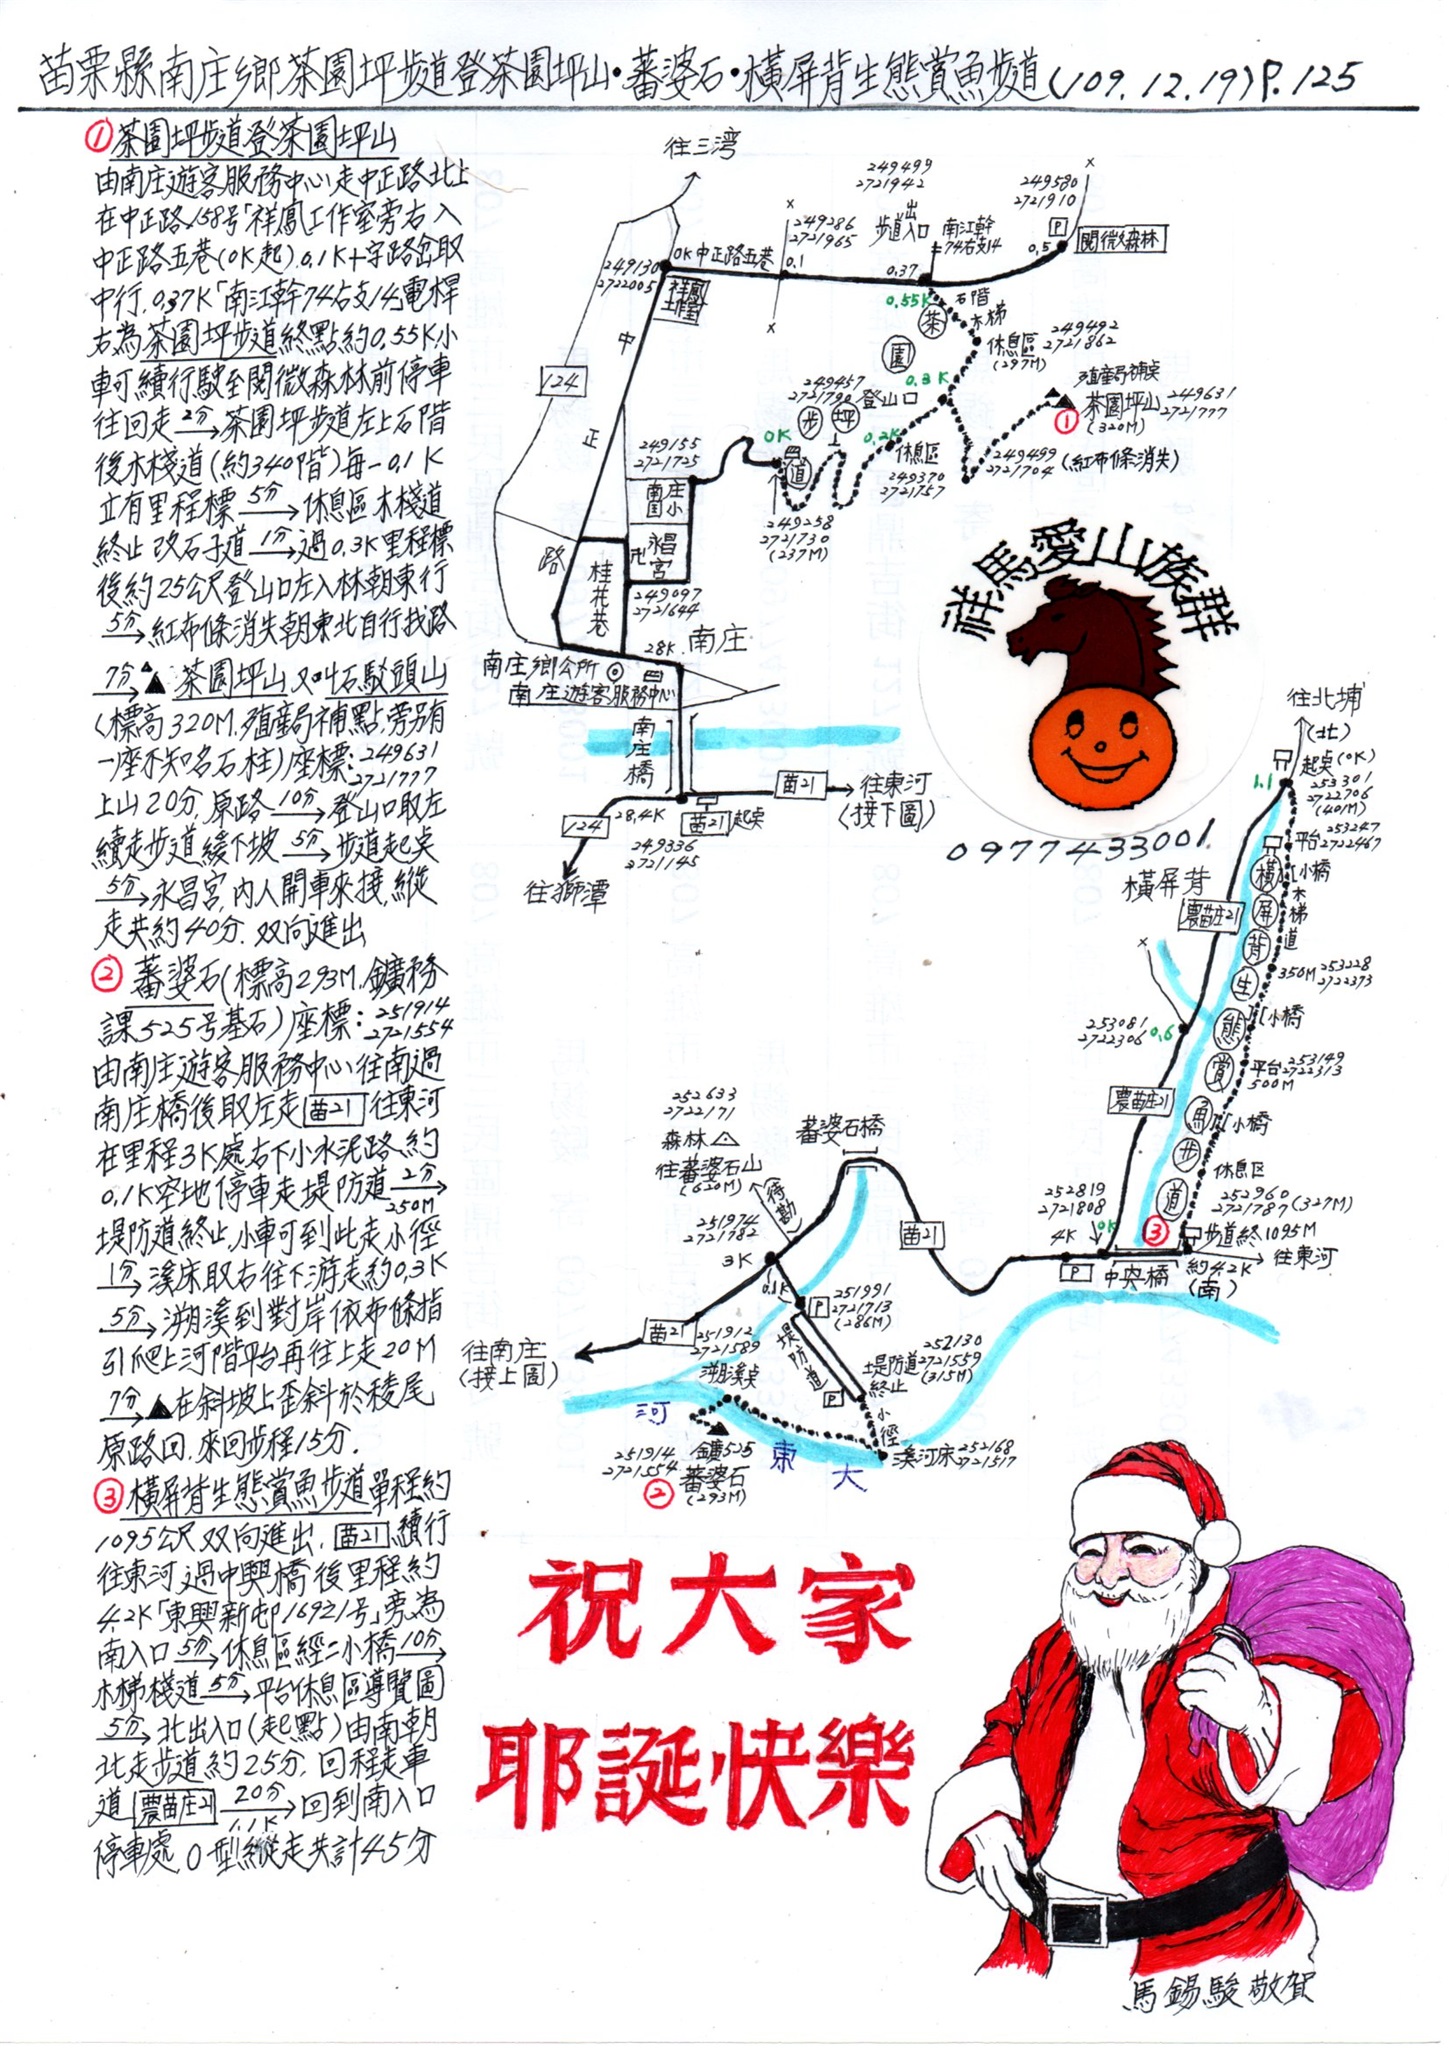 苗栗縣南庄鄉茶園坪步道登茶園坪山·蕃婆石·橫屏背生態賞魚步道(109.12.19)P.125
① 茶園坪步道登茶園坪山
由南庄遊客服務中心走中正路北上
在中正路158号「祥鳳工作室旁右入
中正路五巷(0K起).0.1K十字路岔取
中行.0.37K「南江幹74右支14」電桿
右為茶園坪步道終點約0.55K小
車可續行駛至閱微森林前停車
往回走 2分→茶園坪步道左上石階
後木棧道(約340階)每一0.1K
立有里程標 5分→休息區木棧道
終止改石子道 1分→過0.3K里程標
後約25公尺登山口左入林朝東行
5分→紅布條消失朝東北自行找路
7分→▲茶園坪山又叫石駁頭山
(標高320M.殖產局補點,旁另有
一座不知名石柱)座標:249631
2721777
上山20分,原路 10分→登山口取左
續走步道緩下坡 5分→步道起点
5分→永昌宮,內人開車來接,縱
走共約40分.双向進出
② 蕃婆石(標高293M.鑛務
課525号基石)座標:251914
2721554
由南庄遊客服務中心往南過
南庄橋後取左走苗21往東河
在里程3K處右下小水泥路.約
0.1K空地停車走堤防道 2分→
250M
堤防道終止.小車可到此走小徑
1分→溪床取右往下游走約0.3K
5分→溯溪到對岸依布條指
引爬上河階平台再往上走20M
7分→▲在斜坡上歪斜於稜尾
原路回.來回步程15分.
③ 橫屏背生態賞魚步道單程約
1095公尺双向進出.苗21續行
往東河過中興橋後里程約
4.2K「東興新邨16921号」旁為
南入口 5分→休息區經二小橋 10分→
木梯棧道 5分→平台休息區導覽圖
5分→北出入口(起點)由南朝
北走步道約25分.回程走車
道農苗庄21 20分→回到南入口
1.1K
停車處O型縱走共計45分
往三湾
249499
2721942
249580
2721910
249286
2721965
出
步道入口
南江幹
74右支14
P
閱微森林
0K中正路五巷
0.1
0.37
0.5
249130
2722005
祥鳳
工作室
0.55K
石階
木梯
休息區
249492
2721862
(297M)
中
正
路
124
茶
園
坪
步
道
249457
2721790
登山口
0.3K
0.2K
0K
殖產局補点
茶園坪山
249631
2721777
(320M)
①
249499
2721704
(紅布條消失)
休息區
249370
2721757
249258
2721730
(237M)
249155
2721725
南庄
国小
卍
永昌
宮
桂花巷
249097
2721644
28K
南庄
南庄鄉公所
南庄遊客服務中心
南庄橋
苗21
往東河
(接下圖)
124
28.4K
苗21
起点
249336
2721145
往獅潭
祥馬愛山族群
0977433001.
往北埔
(北)
起点(0K)
253301
2722706
(401M)
1.1
平台
253247
2722467
小橋
木梯道
橫屏背
農苗庄21
橫屏背生態賞魚步道
350M
253228
2722373
小橋
253081
2722306
0.6
平台
253149
2722313
500M
農苗庄21
小橋
休息區
252960
2721787
(327M)
252819
2721808
4K
0K
③
步道終1095M
往東河
P
中央橋
約4.2K
(南)
252633
2722171
森林△
往蕃婆石山
(620M)
(待勘)
蕃婆石橋
251974
2721782
3K
苗21
0.1K
P
251991
2721713
(286M)
苗21
往南庄
(接上圖)
251912
2721589
溯溪点
堤防道
252130
2721559
(315M)
堤防道
終止
P
小徑
溪河床
252168
2721517
河
東
大
251914
2721554
鑛525
蕃婆石
(293M)
②
祝大家
耶誕快樂
馬錫駿敬賀